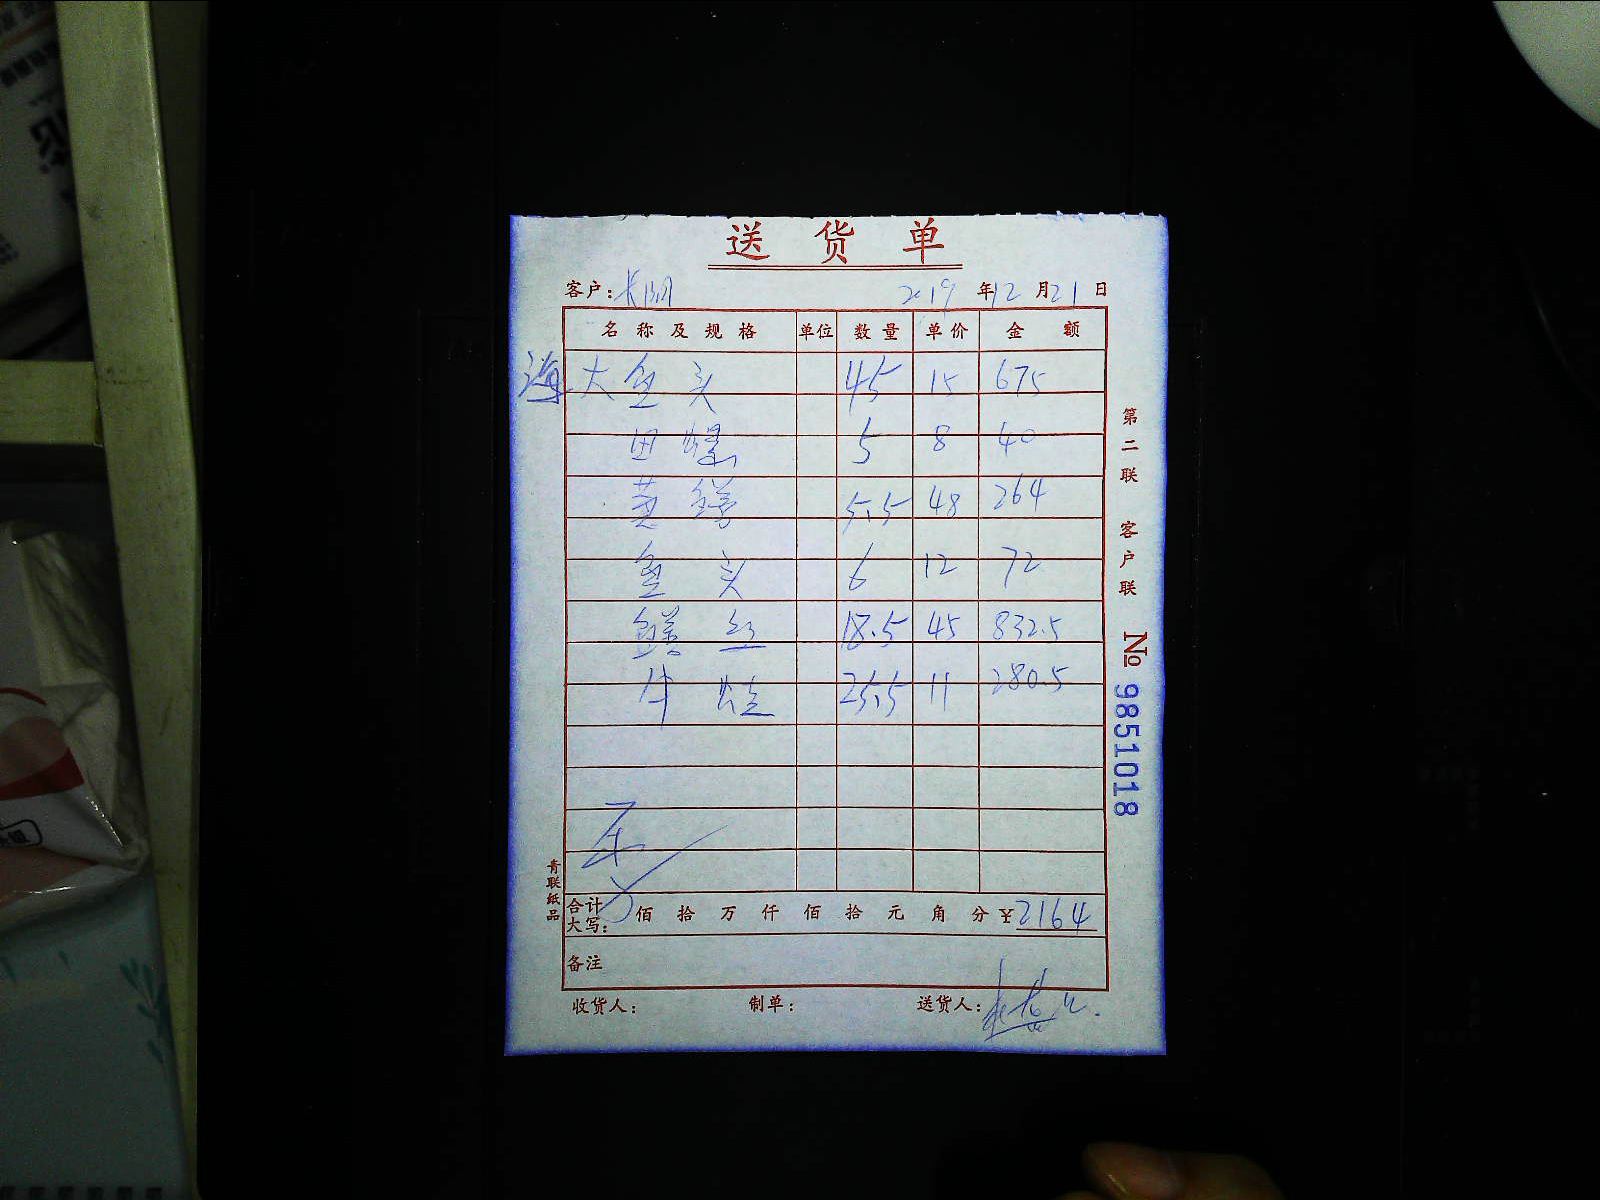 送货单
客户: 2019年12月21日
名称及规格 单位 数量 单价 金额
海 大鱼头 45 15 675
田螺 5 8 40
黄鳝 5.5 48 264
鱼头 6 12 72
鳝丝 18.5 45 832.5
牛蛙 25.5 11 280.5
合计大写: 佰拾万仟佰拾元角分 ¥2164
备注
收货人: 制单: 送货人:
第二联 客户联 No 9851018
青联纸品